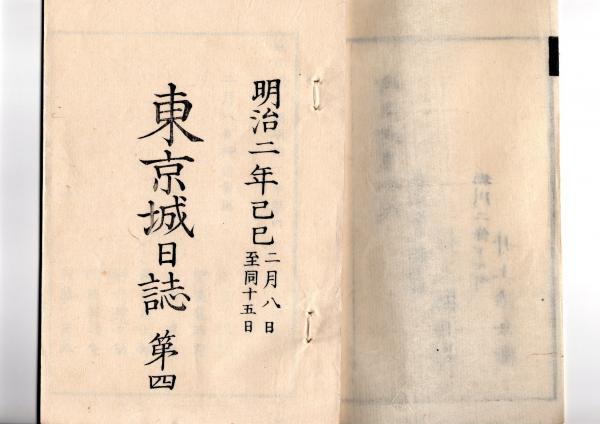 明治二年己巳
二月八日
至同十五日
東京城日誌 第四